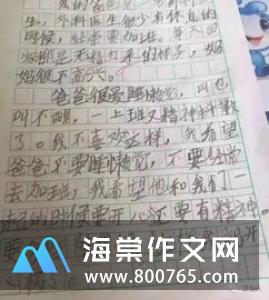 我的爸爸是一名外科医
生，外科医生很少有休息的
时候，经常要加班。每天回
家都是无精打采的样子，妈
妈很不高兴。
爸爸很爱睡懒觉，叫也
叫不醒，一上班又精神抖擞
了。我不喜欢这样，我希望
爸爸不要睡懒觉，不要经常
去加班，我希望他和我们一
起的时候要开心还要有精神。
海棠作文网
www.800765.com